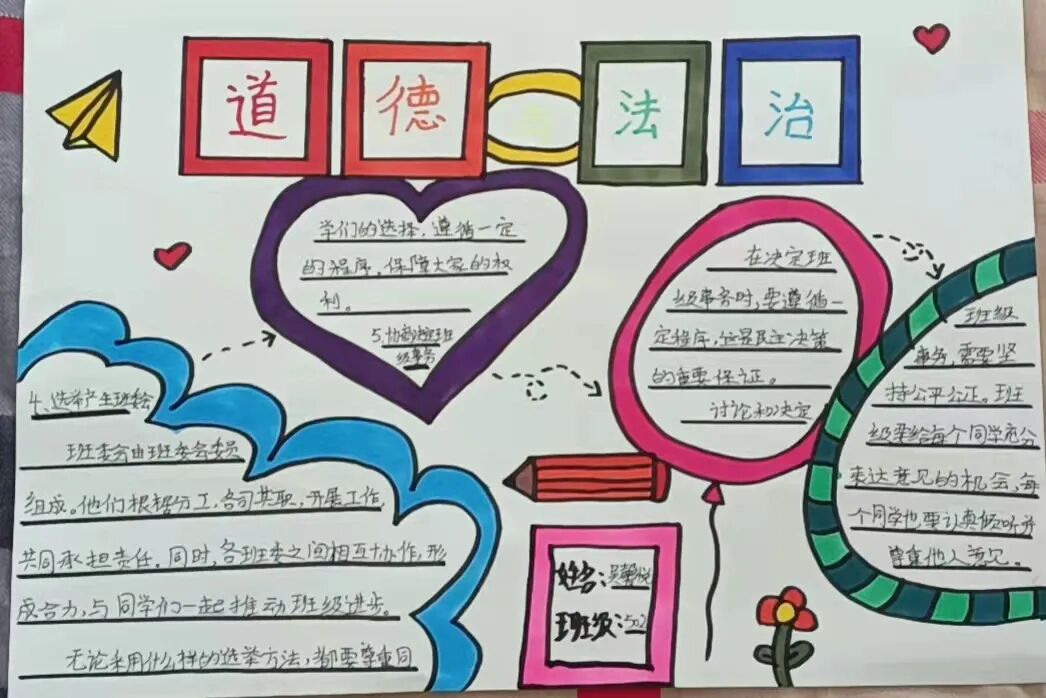 道德与法治
4、选举产生班委会
班委会由班委会委员
组成。他们根据分工，各司其职，开展工作，
共同承担责任。同时，各班委之间相互协作，形
成合力，与同学们一起推动班级进步。
无论采用什么样的选举方法，都要尊重同
学们的选择，遵循一定
的程序。保障大家的权
利。
5.协商决定班
级事务
在决定班
级事务时，要遵循一
定程序，这是民主决策
的重要保证。
讨论和决定
班级
事务，需要坚
持公平公正。班
级要给每个同学充分
表达意见的机会，每
个同学也要认真倾听并
尊重他人意见。
姓名：吴馨悦
班级：502